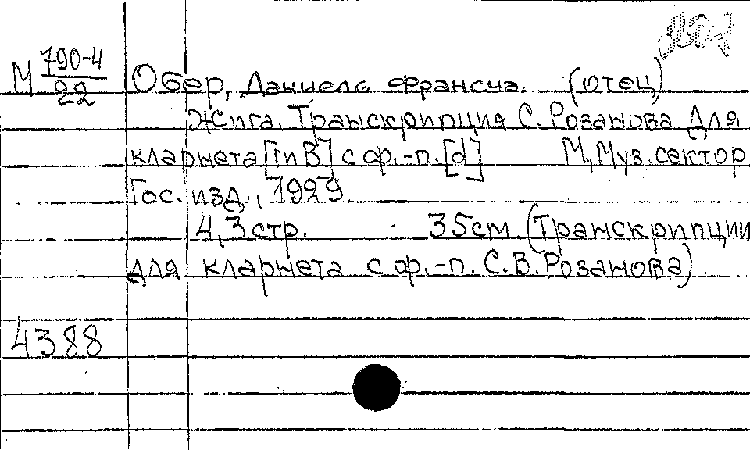 М 790-4/22
Обер, Даниель Франсуа. (отец)
Жига. Транскрипция С. Розанова для
кларнета [in B] с ф.-п. [d] М, Муз. сектор
Гос. изд., 1929.
4,3 стр. 35см (Транскрипции
для кларнета с ф.-п. С.В. Розанова)
4388